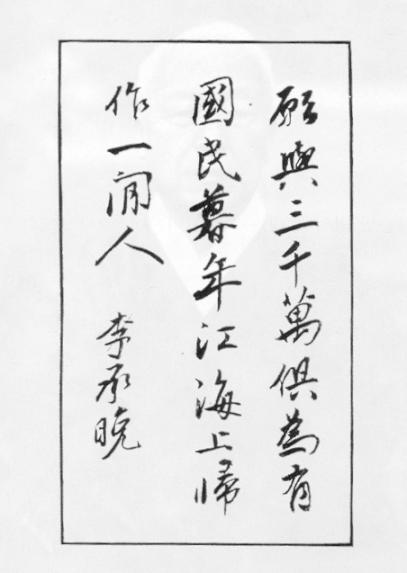 願與三千萬俱為有
國民暮年江海上歸
作一閒人 李承晩